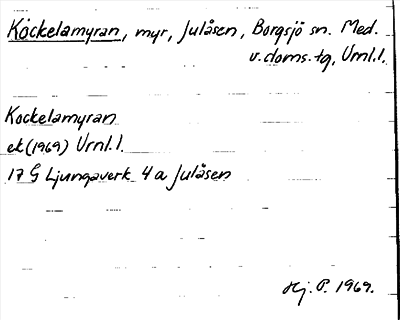 Kockelamyran, myr, Julåsen, Borgsjö sn. Med.
v. doms. tg, Vrnl. l.
Kockelamyran
ek (1969) Vrnl. l.
17 G Ljungaverk 4 a Julåsen
Hj. P. 1969.